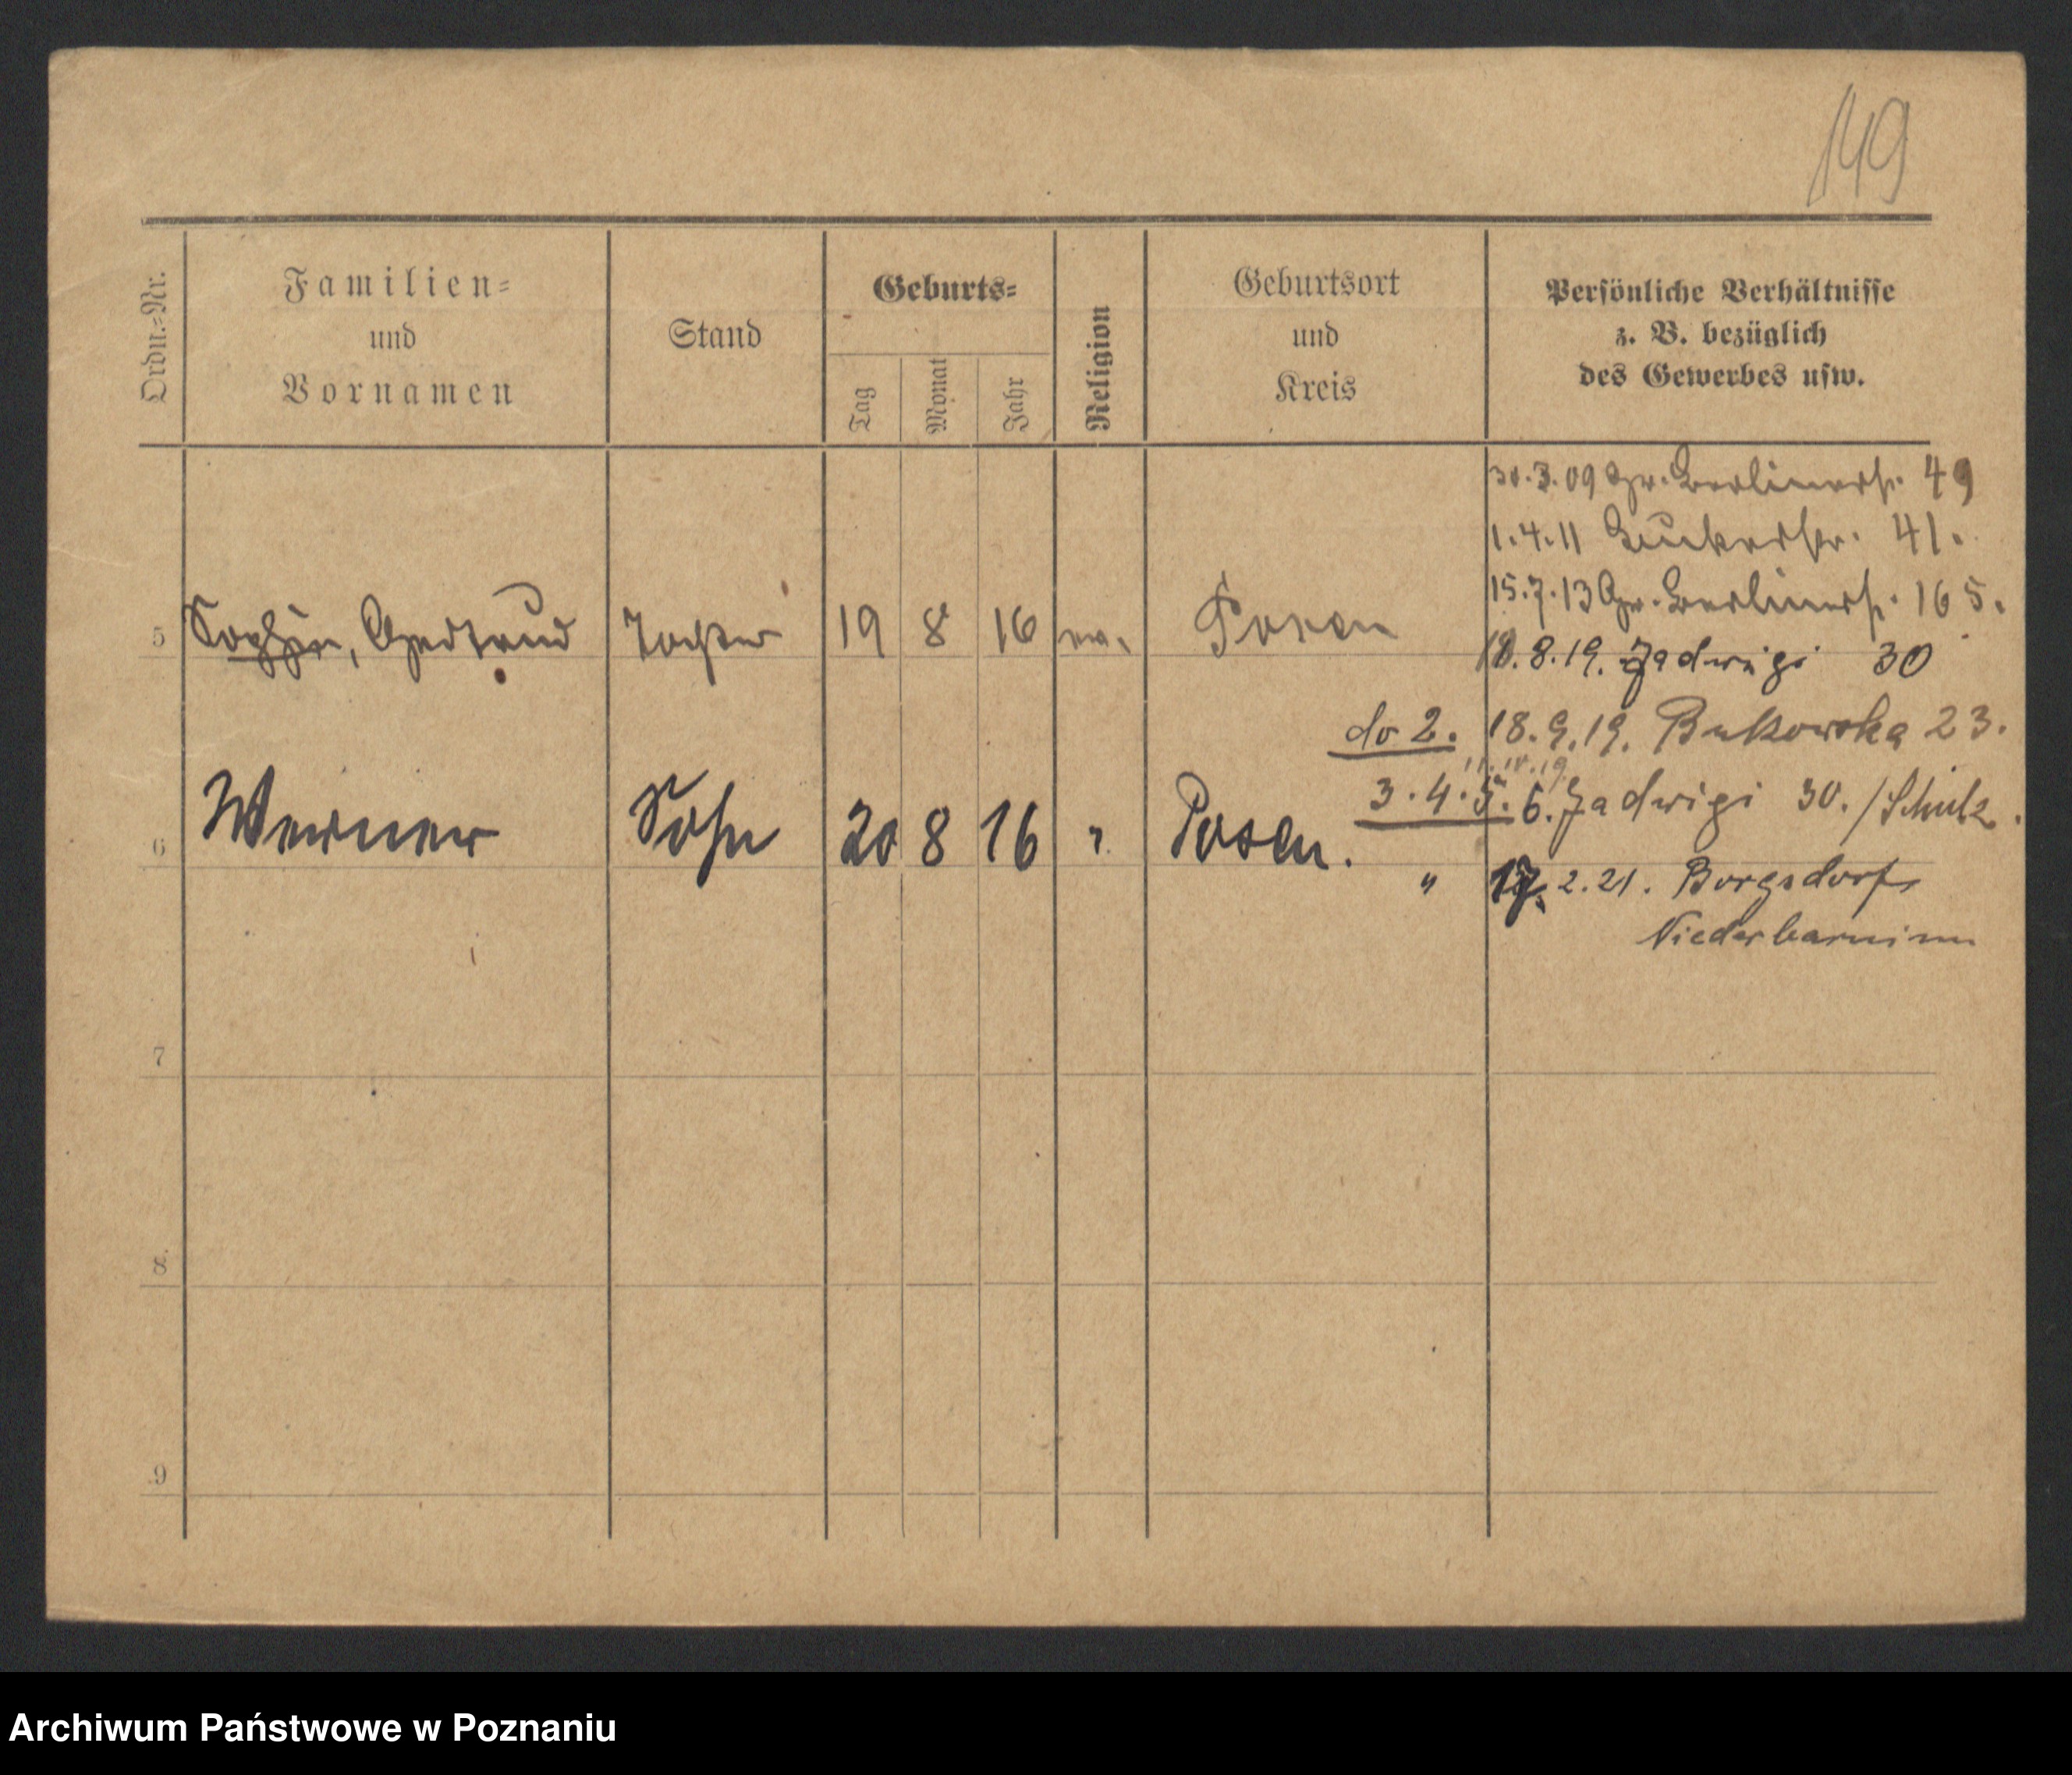 149
Ordn.-Nr.
Familien-
und
Vornamen
Stand
Geburts-
Tag
Monat
Jahr
Religion
Geburtsort
und
Kreis
Persönliche Verhältnisse
z. B. bezüglich
des Gewerbes usw.
30.3.09 Gr. Berlinerstr. 49
1.4.11 Bukerstr. 41.
15.7.13 Gr. Berlinerstr. 165.
5 Sophie, Gertrud Tochter 19 8 16 ev. Posen
18.8.19. Jadwigi 30
do 2. 18.9.19. Bukowska 23.
11.10.19.
3.4.5.6. Jadwigi 30. / Schulz.
6 Werner Sohn 20 8 16 " Posen.
" 17. 2.21. Borgsdorf
Niederbarnim
7
8
9
Archiwum Państwowe w Poznaniu